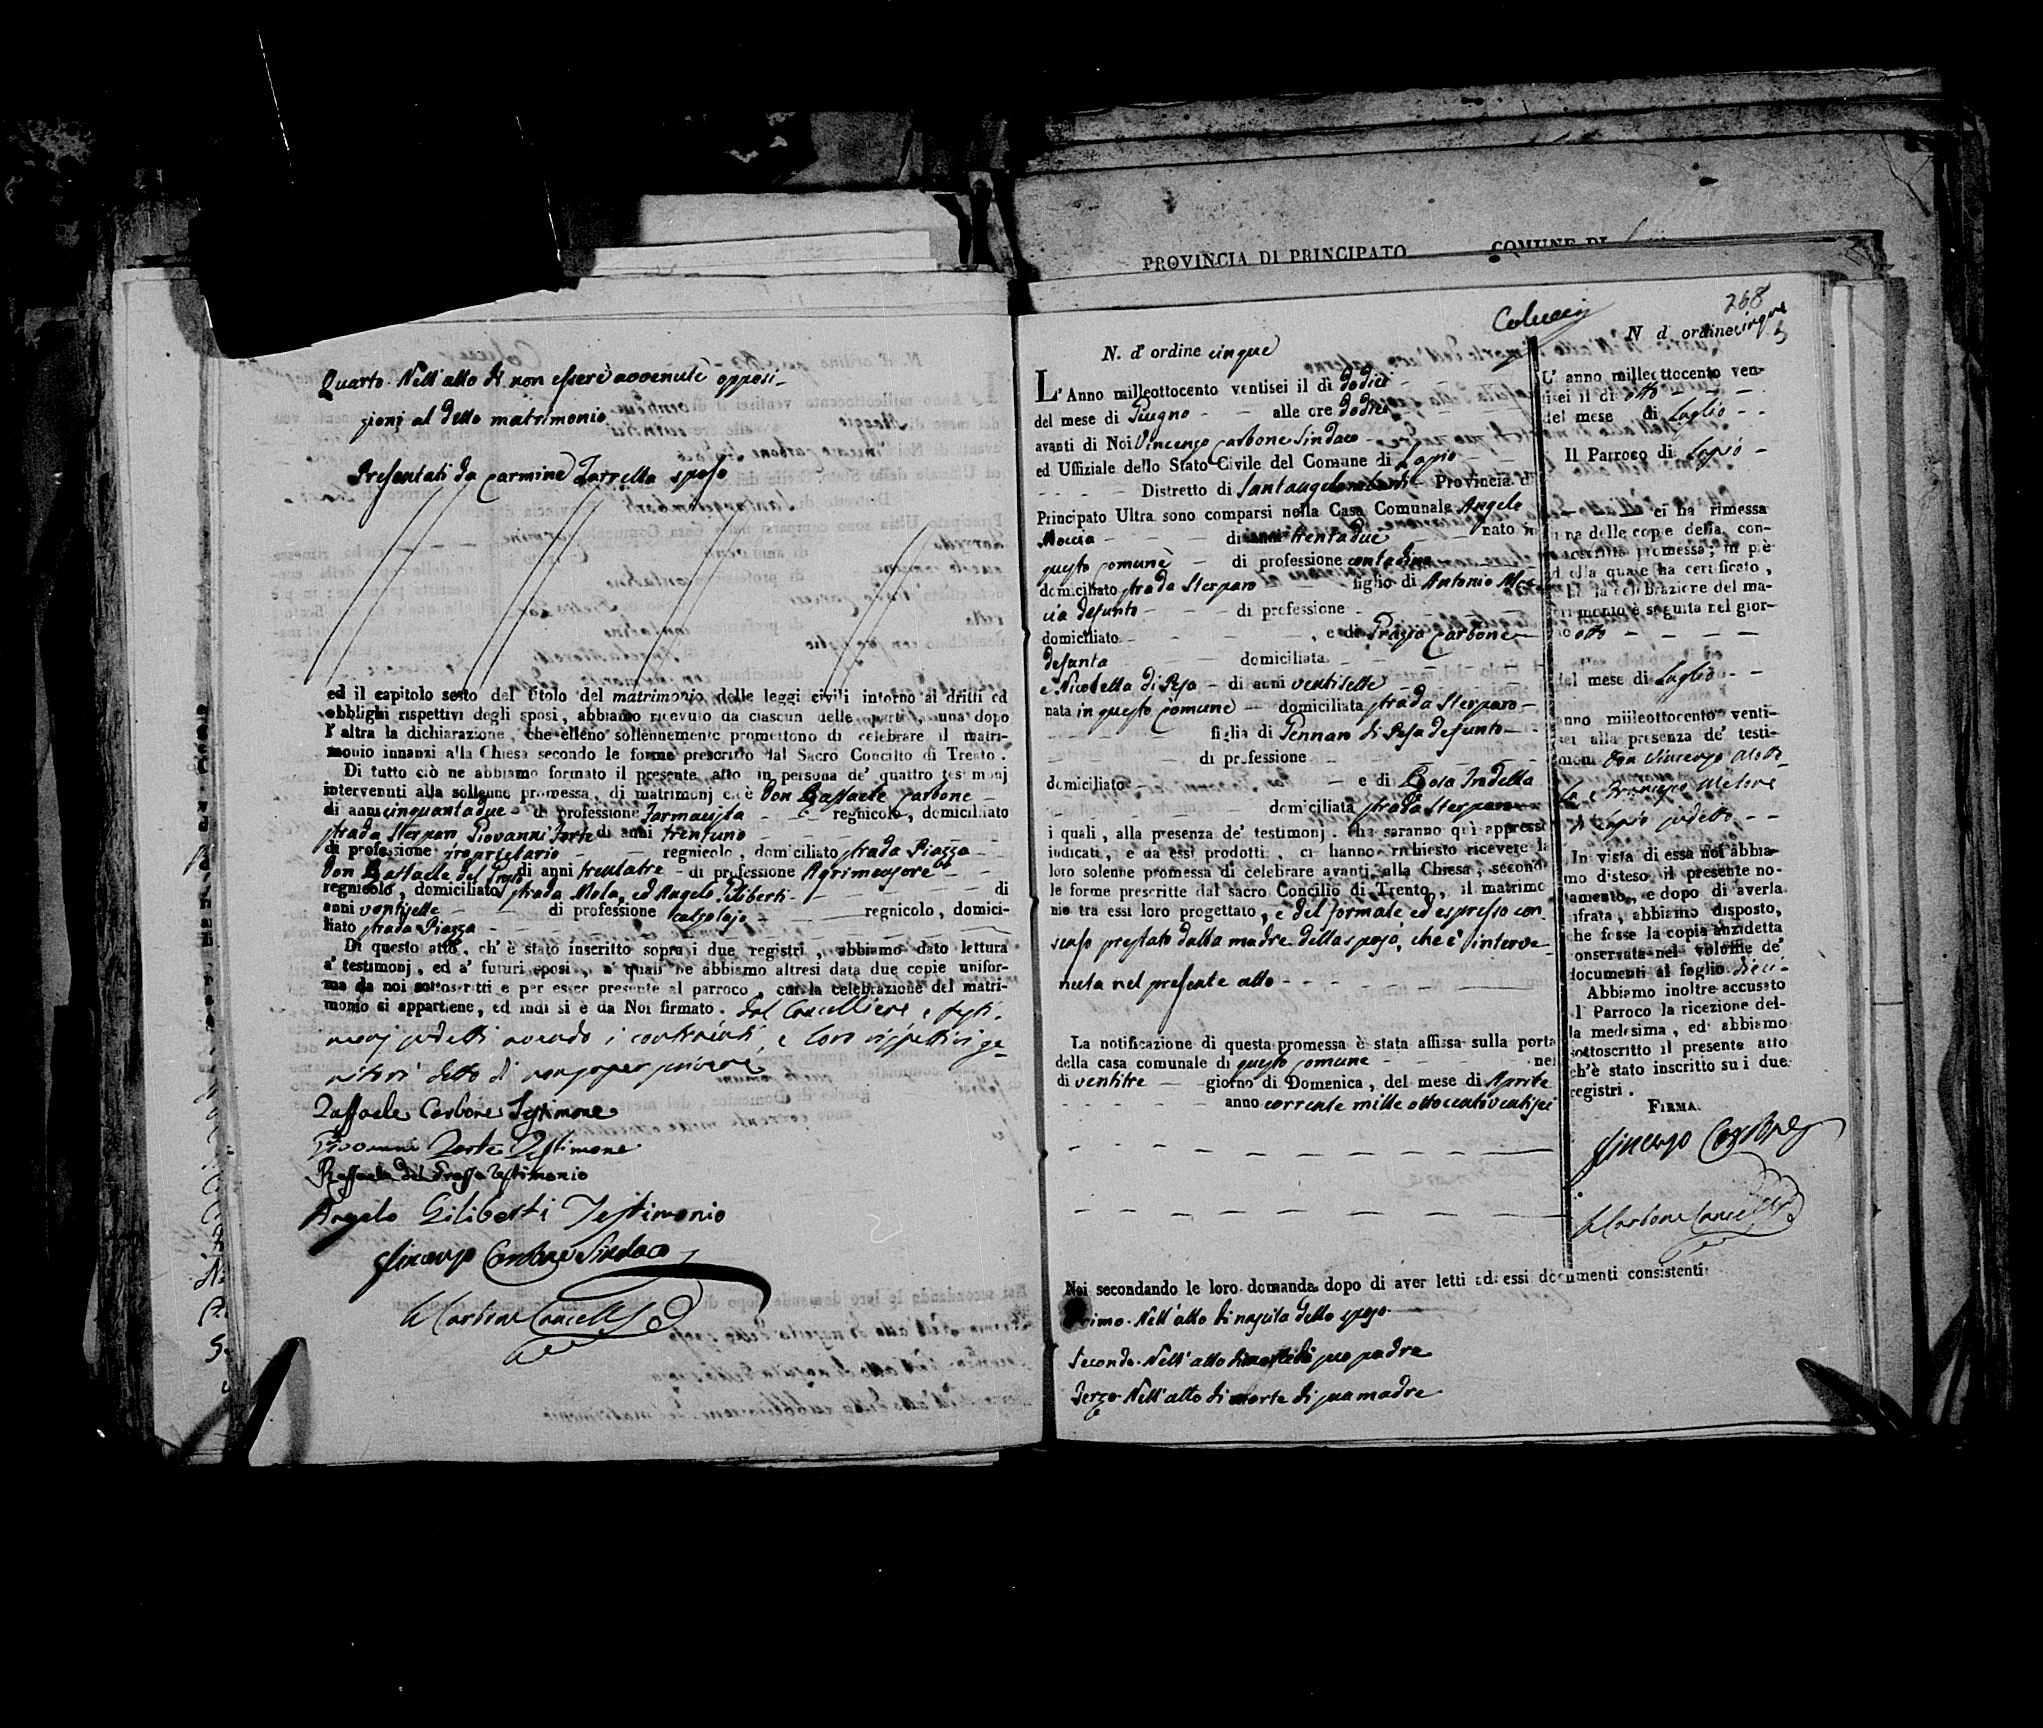 Quarto. Nell'atto di non essere avvenute opposi-
zioni al detto matrimonio
Presentati da Carmine Zarrella sposo
ed il capitolo sesto del titolo del matrimonio delle leggi civili intorno ai dritti ed
obblighi rispettivi degli sposi, abbiamo ricevuto da ciascun delle parti, una dopo
l'altra la dichiarazione, che elleno sollennemente promettono di celebrare il matri-
monio innanzi alla Chiesa secondo le forme prescritto dal Sacro Concilio di Trento.
Di tutto ciò ne abbiamo formato il presente atto in persona de' quattro testimonj
intervenuti alla sollenne promessa, di matrimonj cioè Don Raffaele Carbone
di anni cinquantadue di professione Farmacista regnicolo, domiciliato
strada Sterparo Giovanni Forte di anni trentuno
di professione proprietario regnicolo, domiciliato strada Piazza
Don Raffaele del Grosso di anni trentatre di professione Agrimensore
regnicolo, domiciliato strada Mola, ed Angelo Giliberti di
anni ventisette di professione calzolajo regnicolo, domici-
liato strada Piazza
Di questo atto, ch'è stato inscritto sopra i due registri, abbiamo dato lettura
a' testimonj, ed a' futuri sposi, a' quali ne abbiamo altresi data due copie unifor-
me da noi sottoscritti e per esser presente al parroco, cui la celebrazione del matri-
monio si appartiene, ed indi si è da Noi firmato. dal Cancelliere e testi-
monj sudetti avendo i contraenti, e loro rispettivi ge-
nitori detto di non saper scrivere
Raffaele Carbone Testimone
Giovanni Forte Testimone
Raffaele del Grosso Testimonio
Angelo Giliberti Testimonio
Vincenzo Carbone Sindaco
Carbone Cancell
PROVINCIA DI PRINCIPATO COMUNE DI
268
N. d'ordine cinque
L'Anno milleottocento ventisei il dì dodici
del mese di Giugno alle ore dodici
avanti di Noi Vincenzo Carbone Sindaco
ed Uffiziale dello Stato Civile del Comune di Lapio
Distretto di Santangelombardi Provincia di
Principato Ultra sono comparsi nella Casa Comunale Angelo
Moccia di anni trentadue nato in
questo comune di professione contadino
domiciliato strada Sterparo figlio di Antonio Moc
cia defunto di professione
domiciliato , e di Grazia Carbone
defunta domiciliata
e Nicoletta di Peso di anni ventisette
nata in questo comune domiciliata strada Sterparo
figlia di Gennaro di Peso defunto
di professione
domiciliato e di Rosa
domiciliata strada Sterparo
i quali, alla presenza de' testimonj. che saranno quì appresso
indicati, e da essi prodotti, ci hanno richiesto ricevere la
loro solenne promessa di celebrare avanti alla Chiesa, secondo
le forme prescritte dal sacro Concilio di Trento, il matrimo
nio tra essi loro progettato, e del formale ed espresso con
senso prestato dalla madre della sposa, che è interve-
nuta nel presente atto
La notificazione di questa promessa è stata affissa sulla porta
della casa comunale di questo comune nel
di ventitre giorno di Domenica, del mese di Aprile
anno corrente mille ottocentoventisei
Noi secondando le loro domanda dopo di aver letti ad essi documenti consistenti
Primo. Nell'atto di nascita dello sposo
Secondo. Nell'atto di morte di suo padre
Terzo. Nell'atto di morte di sua madre
N d'ordine cinque
L'anno milleottocento ven-
tisei il dì otto
del mese di Luglio
Il Parroco di Lapio
ci ha rimessa
una delle copie della con-
troscritta promessa; in piè
della quale ha certificato,
che la celebrazione del ma-
trimonio è seguita nel gior-
no otto
del mese di Luglio
anno milleottocento venti-
sei alla presenza de' testi-
monj Don Vincenzo
di Lapio sudetto
In vista di essa noi abbia-
mo disteso il presente no-
tamento, e dopo di averla
cifrata, abbiamo disposto,
che fosse la copia anzidetta
conservata nel volume de'
documenti al foglio
Abbiamo inoltre accusato
al Parroco la ricezione del-
la medesima, ed abbiamo
sottoscritto il presente atto
ch'è stato inscritto su i due
registri.
FIRMA.
Vincenzo Carbone
Carbone Cancell